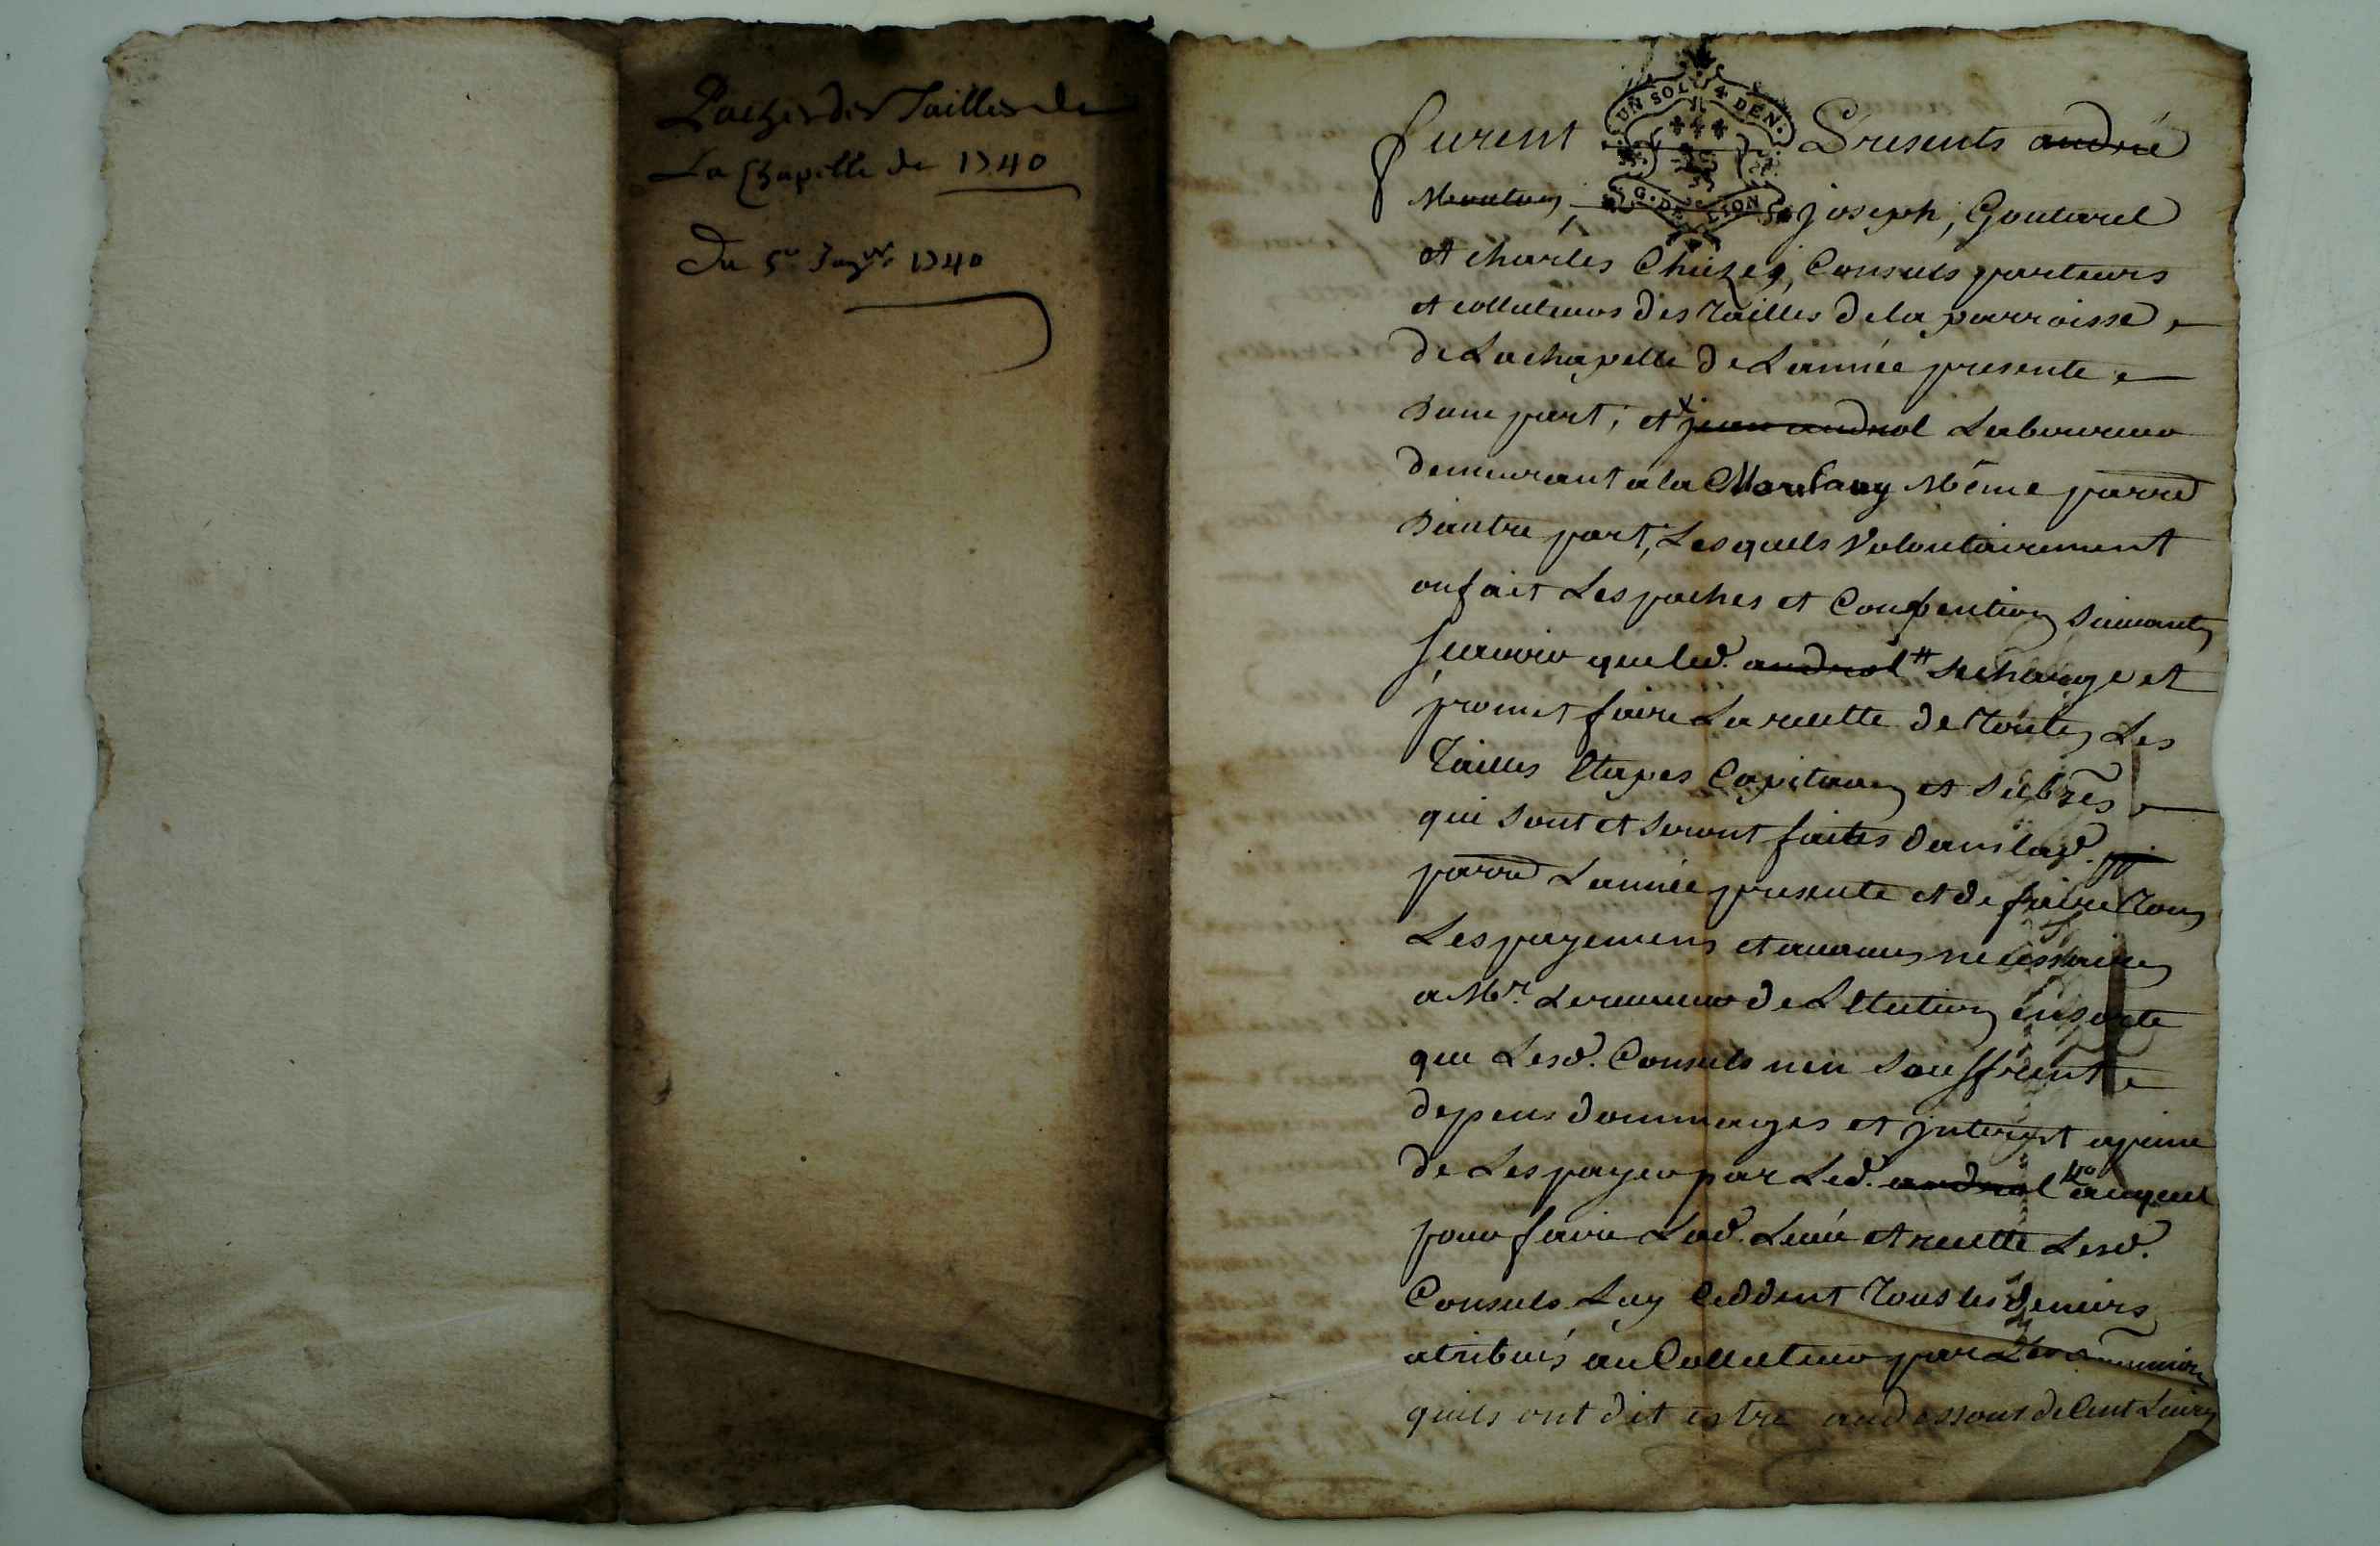 Paches des Tailles de
La Chapelle de 1740
Du 5e Janvr 1740
UN SOL 4 DEN.
G. DE LION
furent Presents andré
joseph, Goutarel
et charles Chiezes, Consuls parteurs
et collecteurs des Tailles de la parroisse
de Lachapelle de Lannée presente
dune part, et jean andreol Laboureur
demeurant a la même parre
dautre part, Lesquels Volontairement
onfait Les paches et Conpention suivants
scauoir que led. andreol # se charge et
promet faire La recette de Toutes Les
Tailles Etapes Capitaon et
qui sont et seront faites dans lad.
parre Lannée presente et de faire Tous
Les payemens et auances necessaires
a Mr. Lereceueur de Lelection ensorte
que Lesd. Consuls nen souffrent
depens dommages et jnterest apeine
de Les payer par Led. andreol auquel
pour faire Lad. Leuée et recette Lesd.
Consuls Luy Ceddent Tous les deniers
atribués au Collecteur par
quils ont dit estre audessous de Cent Liures